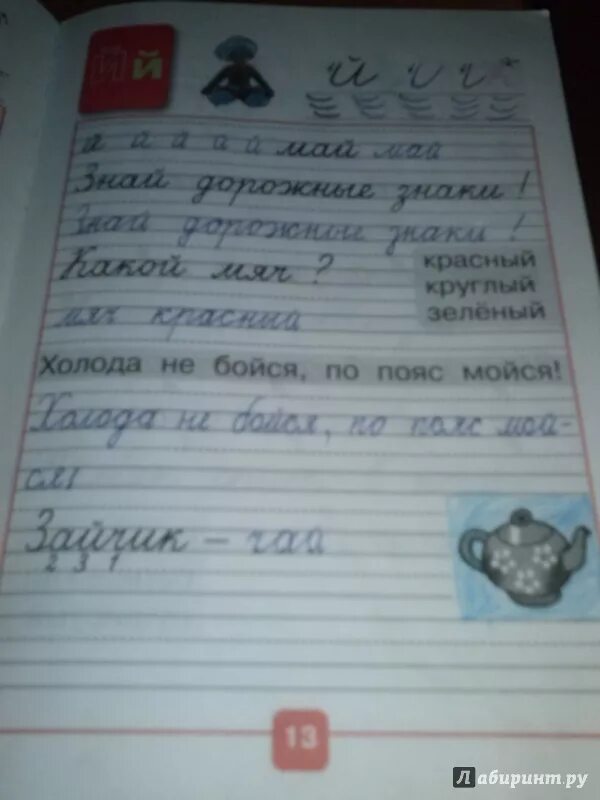 Й й
й и г
й й й й й май май
Знай дорожные знаки !
Знай дорожные знаки !
Какой мяч ?
красный
круглый
зелёный
мяч красный
Холода не бойся, по пояс мойся!
Холода не бойся, по пояс мой-
ся!
Зайчик – чай
2 3 1
13
Лабиринт.ру